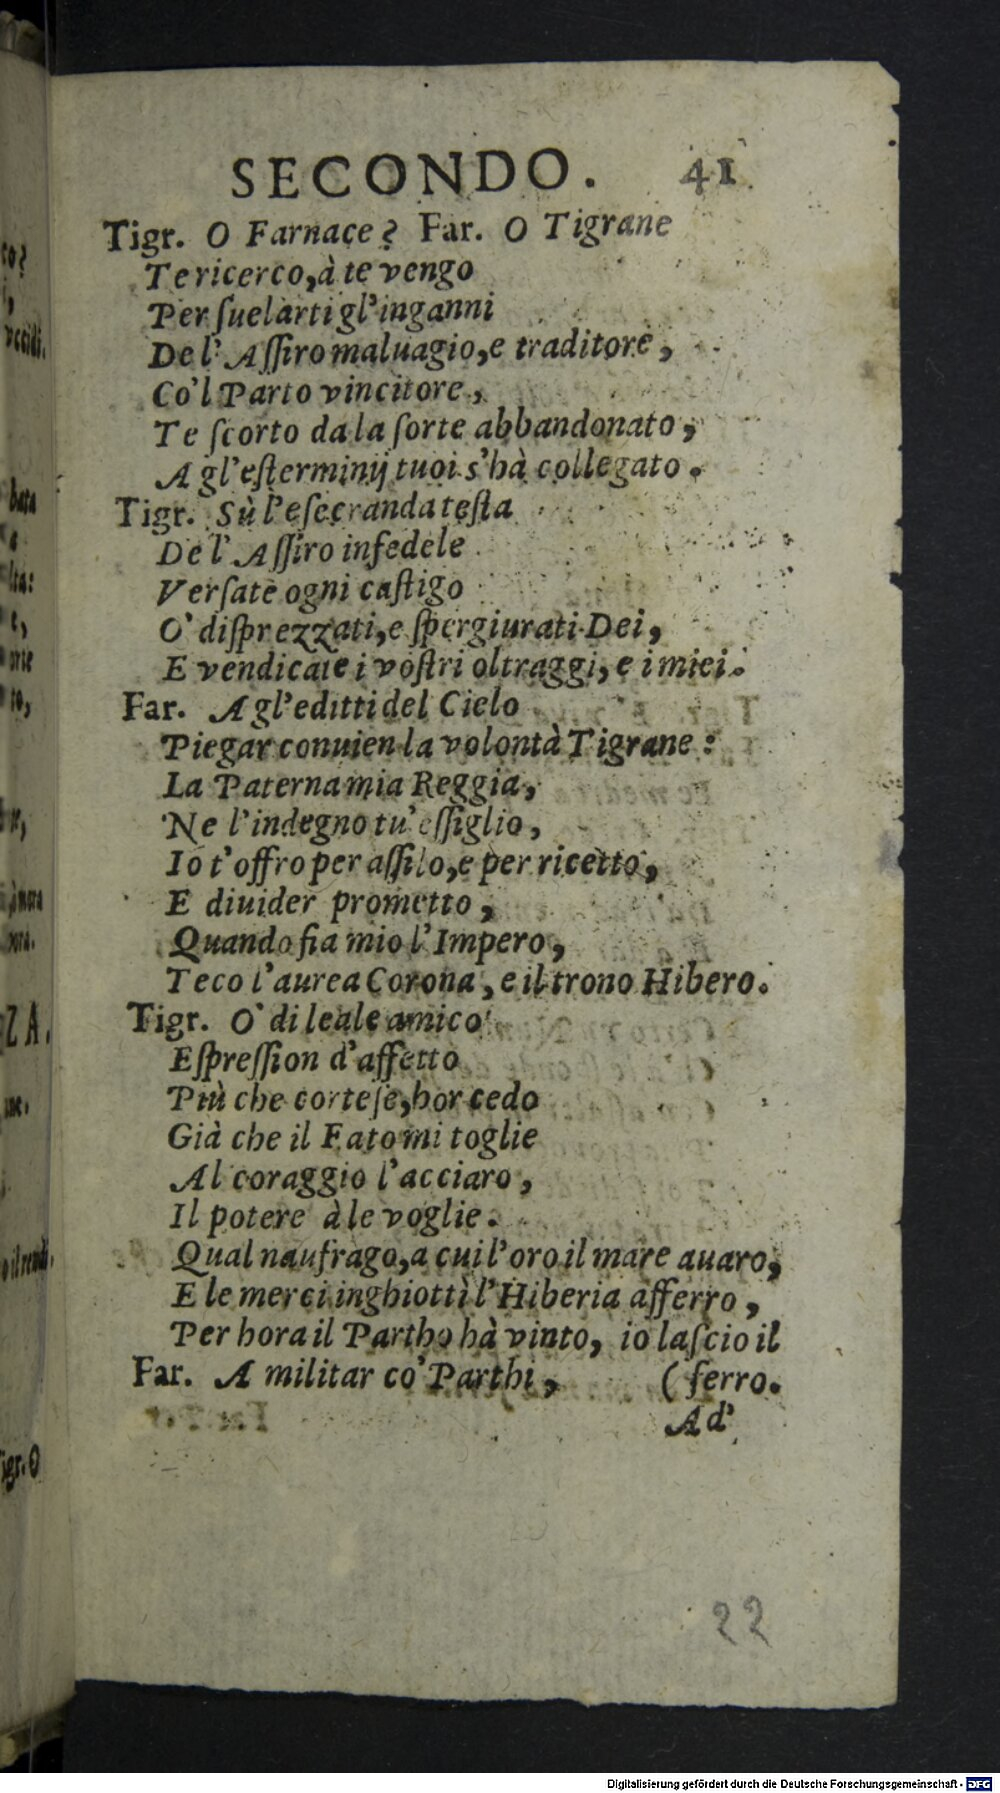 SECONDO. 41
Tigr. O Farnace? Far. O Tigrane
Te ricerco, à te vengo
Per ſuelarti gl'inganni
De l'Aſſiro maluagio, e traditore,
Co'l Parto vincitore,
Te ſcorto da la ſorte abbandonato,
A gl'eſterminij tuoi s'hà collegato.
Tigr. Sù l'eſecranda teſta
De l'Aſſiro infedele
Verſate ogni caſtigo
O' diſprezzati, e ſpergiurati Dei,
E vendicate i voſtri oltraggi, e i miei.
Far. A gl'editti del Cielo
Piegar conuien la volontà Tigrane:
La Paterna mia Reggia,
Ne l'indegno tu' eſſiglio,
Io t'offro per aſſilo, e per ricetto,
E diuider prometto,
Quando fia mio l'Impero,
Teco l'aurea Corona, e il trono Hibero.
Tigr. O' di leale amico
Eſpreſſion d'affetto
Più che corteſe, hor cedo
Già che il Fato mi toglie
Al coraggio l'acciaro,
Il potere à le voglie.
Qual naufrago, a cui l'oro il mare auaro,
E le merci inghiottì l'Hiberia afferro,
Per hora il Partho hà vinto, io laſcio il
Far. A militar co' Parthi, (ferro.
Ad'
22
co?
vccidi.
bata
lta:
e,
orte
to,
ZA.
oltrendi.
Tigr. O
Digitalisierung gefördert durch die Deutsche Forschungsgemeinschaft - DFG